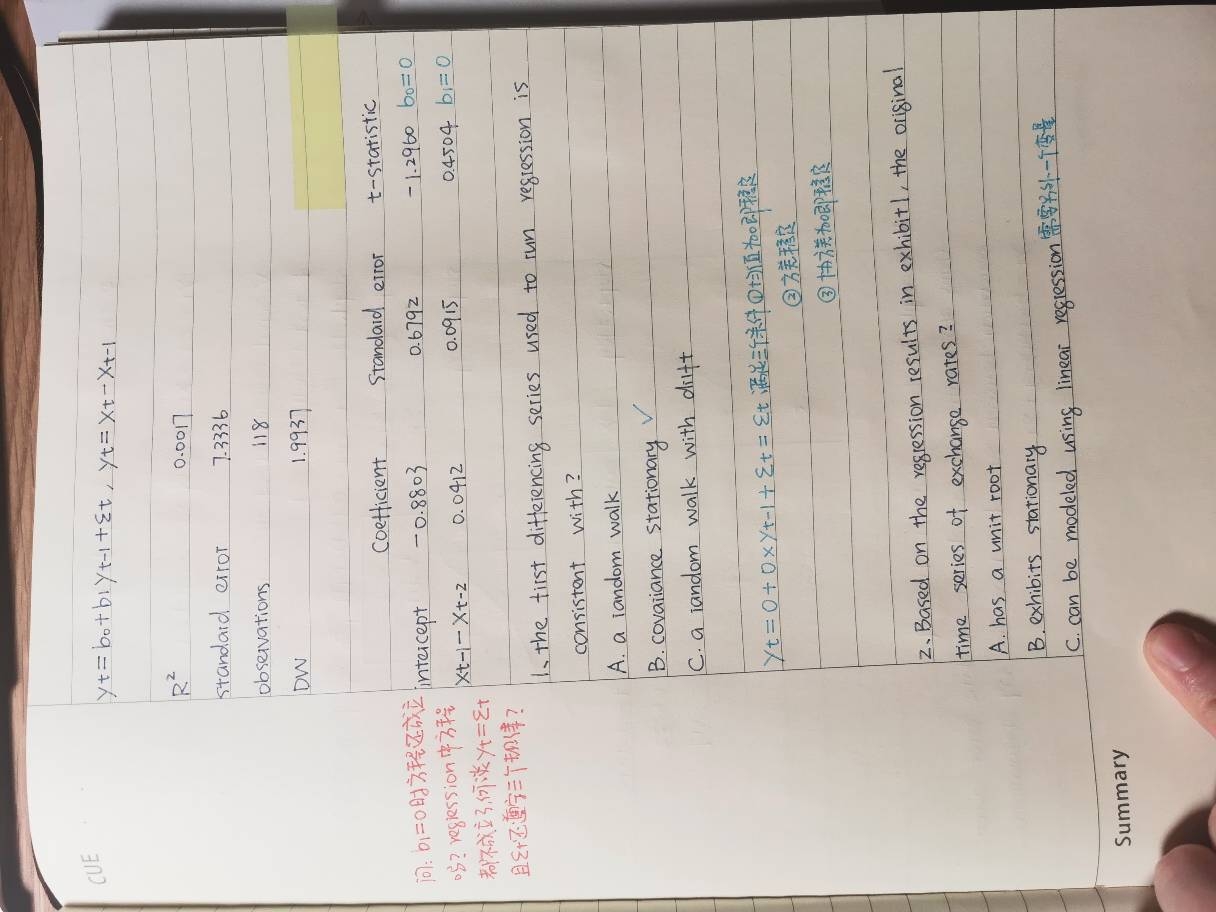 CUE
yt = b0 + b1 yt-1 + Σt , yt = Xt - Xt-1
R² 0.0017
standard error 7.3336
observations 118
DW 1.9937
Coefficient standard error t-statistic
intercept -0.8803 0.6792 -1.2960 b0=0
Xt-1 - Xt-2 0.0412 0.0915 0.4504 b1=0
问: b1=0时方程还成立
吗? regression中方程
都不成立了,何谈yt=Σt
且Σt还遵守三个规律?
1、the first differencing series used to run regression is
consistent with?
A. a random walk
B. covariance stationary ✓
C. a random walk with drift
yt = 0 + 0 × yt-1 + Σt = Σt 满足三个条件 ①均值为0即稳定
②方差稳定
③协方差为0即稳定
2、Based on the regression results in exhibit1, the original
time series of exchange rates?
A. has a unit root
B. exhibits stationary
C. can be modeled using linear regression 需要另外一个变量
Summary